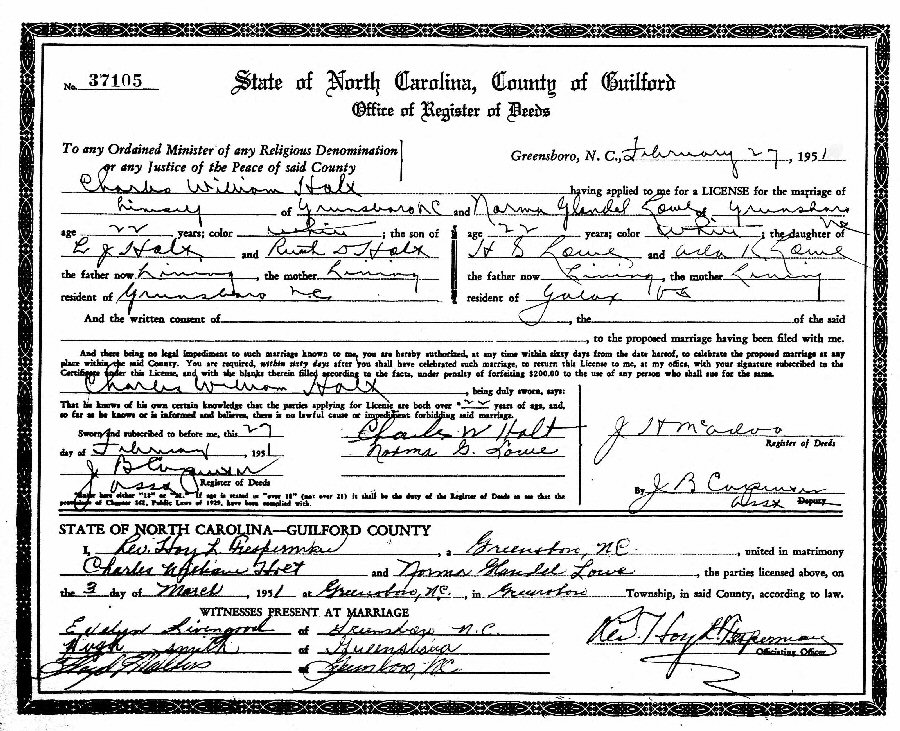 No. 37105
State of North Carolina, County of Guilford
Office of Register of Deeds
To any Ordained Minister of any Religious Denomination
or any Justice of the Peace of said County
Greensboro, N. C., February 27, 1951
Charles William Holt having applied to me for a LICENSE for the marriage of
himself of Greensboro NC and Norma Glendel Lowe of Greensboro NC
age 22 years; color white; the son of
L J Holt and Ruth D Holt
the father now Living, the mother Living
resident of Greensboro N.C.
age 22 years; color White; the daughter of
H S Lowe and K Lowe
the father now Living, the mother Living
resident of Galax Va
And the written consent of , the of the said
, to the proposed marriage having been filed with me.
And there being no legal impediment to such marriage known to me, you are hereby authorized, at any time within sixty days from the date hereof, to celebrate the proposed marriage at any
place within the said County. You are required, within sixty days after you shall have celebrated such marriage, to return this License to me, at my office, with your signature subscribed to the
Certificate under this License, and with the blanks therein filled according to the facts, under penalty of forfeiting $200.00 to the use of any person who shall sue for the same.
Charles William Holt, being duly sworn, says:
That he knows of his own certain knowledge that the parties applying for License are both over *22 years of age, and,
so far as he knows or is informed and believes, there is no lawful cause or impediment forbidding said marriage.
Sworn and subscribed to before me, this 27
day of February, 1951
J B
Asst Register of Deeds
Charles W Holt
Norma G. Lowe
*Under here either "18" or "21." If age is stated as "over 18" (not over 21) it shall be the duty of the Register of Deeds to see that the
provisions of Chapter 562, Public Laws of 1929, have been complied with.
J H McAdoo
Register of Deeds
By J B
Asst Deputy
STATE OF NORTH CAROLINA—GUILFORD COUNTY
I, Rev. Hoy L. Fesperman, a Greensboro, N.C., united in matrimony
Charles William Holt and Norma Glendel Lowe, the parties licensed above, on
the 3 day of March, 1951 at Greensboro, N.C., in Greensboro Township, in said County, according to law.
WITNESSES PRESENT AT MARRIAGE
Evelyn Livengood of Greensboro N.C.
Hugh Smith of Greensboro
of Greensboro, N.C.
Rev. Hoy L. Fesperman
Officiating Officer